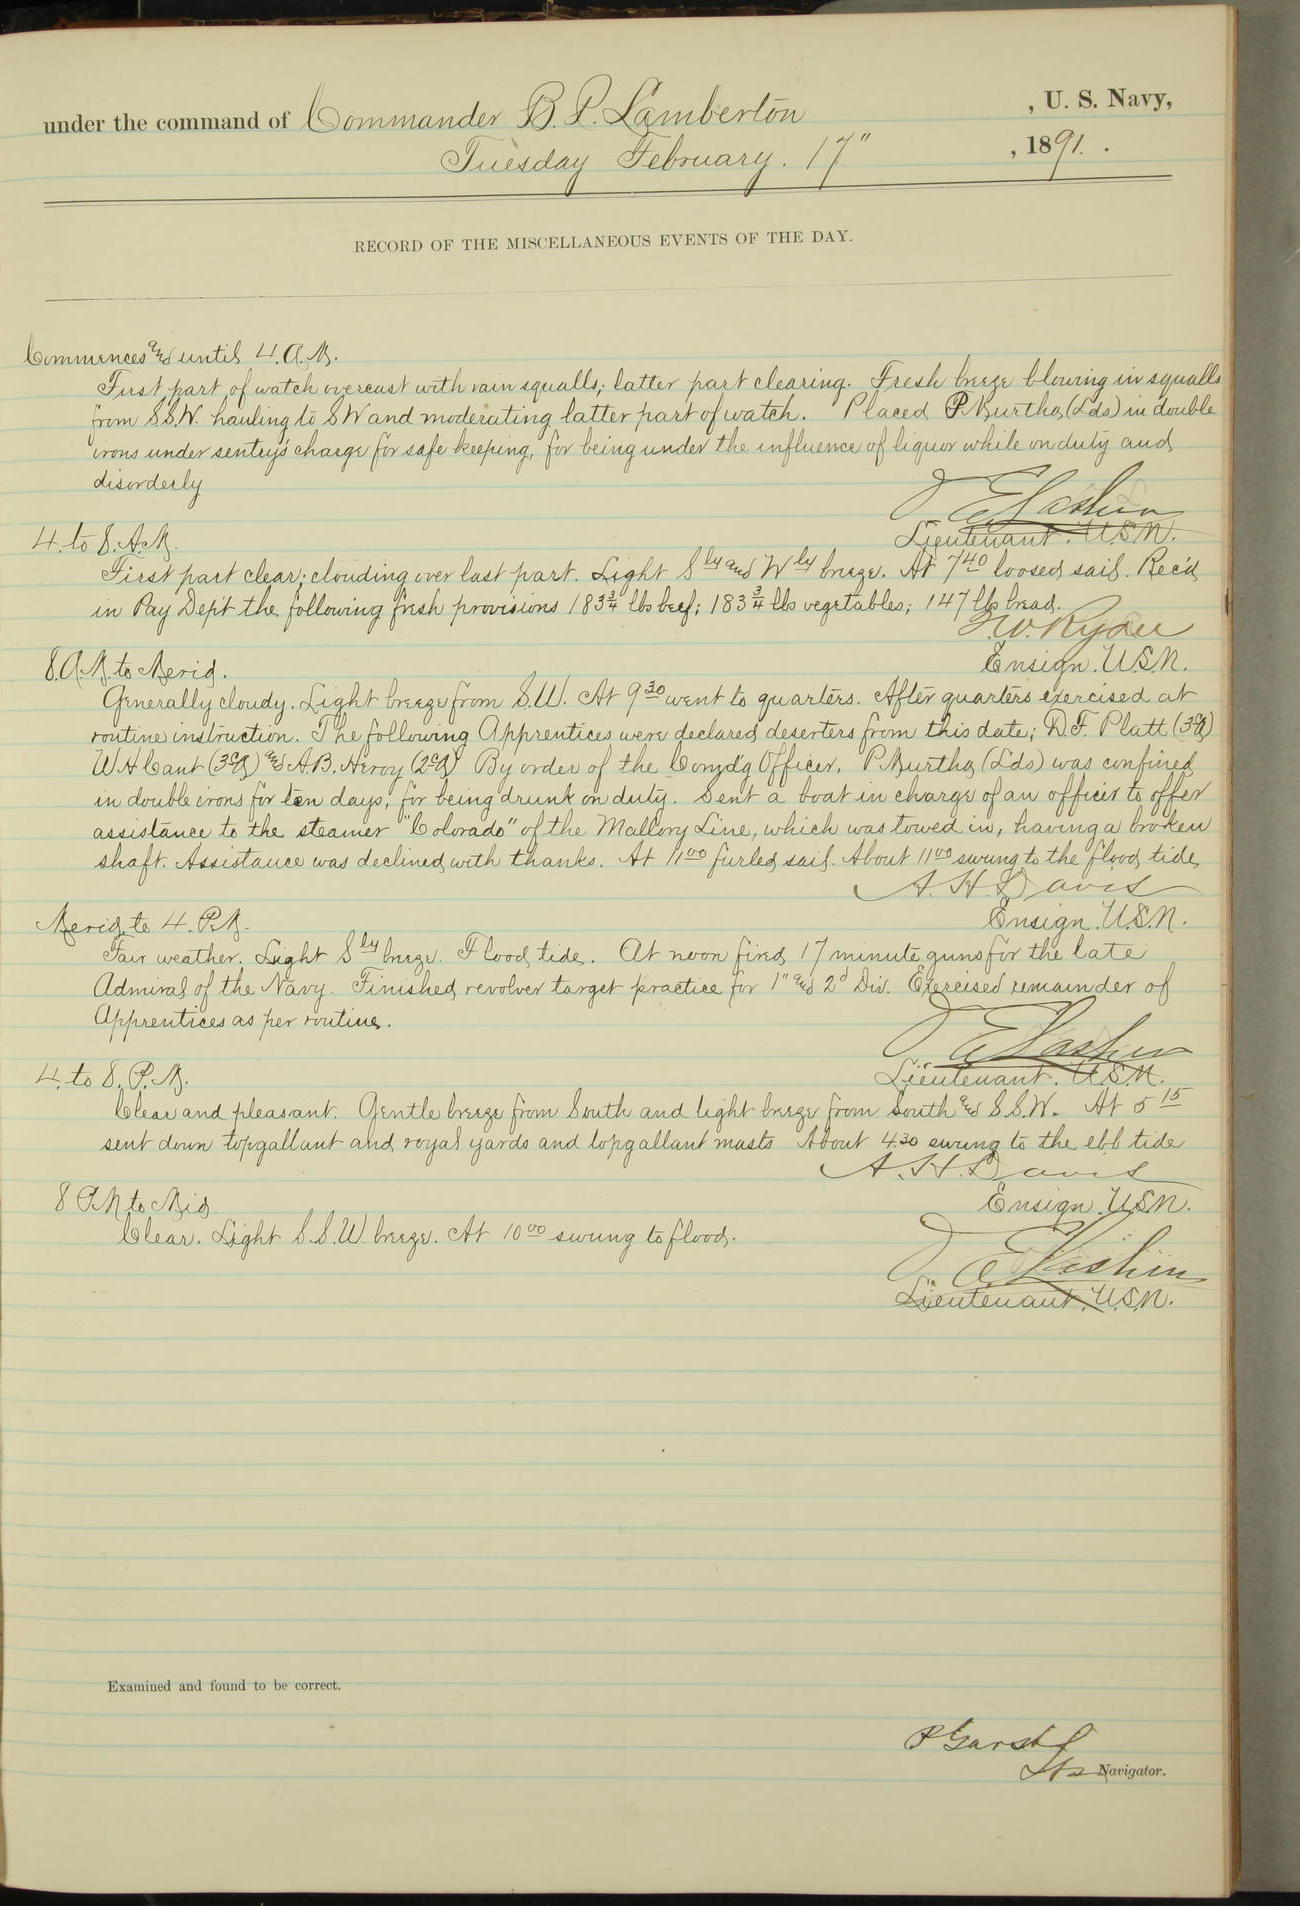 under the command of Commander B. P. Lamberton , U. S. Navy,
Tuesday February. 17" , 1891.
RECORD OF THE MISCELLANEOUS EVENTS OF THE DAY.
Commences and until 4. A.M.
First part of watch overcast with rain squalls; latter part clearing. Fresh breeze blowing in squalls
from S.S.W. hauling to SW and moderating latter part of watch. Placed P. Murtha (Lds) in double
irons under sentry's charge for safe keeping, for being under the influence of liquor while on duty and
disorderly
Lieutenant. U.S.N.
4. to 8. A.M.
First part clear; clouding over last part. Light Sly and Wly breeze. At 7 40 loosed sail. Rec'd
in Pay Dep't the following fresh provisions 183 3/4 lbs beef; 183 3/4 lbs vegetables; 147 lbs bread.
Ensign. U.S.N.
8. A.M. to Merid.
Generally cloudy. Light breeze from S.W. At 9 30 went to quarters. After quarters exercised at
routine instruction. The following Apprentices were declared deserters from this date; D. F. Platt (3cA)
W H Cant (3cA) and A.B. Heroy (2cA) By order of the Comd'g Officer, P Murtha (Lds) was confined
in double irons for ten days, for being drunk on duty. Sent a boat in charge of an officer to offer
assistance to the steamer "Colorado" of the Mallory Line, which was towed in, having a broken
shaft. Assistance was declined with thanks. At 11 00 furled sail. About 11 00 swung to the flood tide
A. H. Davis
Ensign. U.S.N.
Merid, to 4. P.M.
Fair weather. Light Sly breeze. Flood tide. At noon fired 17 minute guns for the late
Admiral of the Navy. Finished revolver target practice for 1" and 2d Div. Exercised remainder of
Apprentices as per routine.
Lieutenant. U.S.N.
4. to 8. P.M.
Clear and pleasant. Gentle breeze from South and light breeze from South and S.S.W. At 5 15
sent down topgallant and royal yards and topgallant masts About 4 30 swung to the ebb tide
A. H. Davis
Ensign. U.S.N.
8 P.M to Mid.
Clear. Light S.S.W. breeze. At 10 00 swung to flood.
Lieutenant. U.S.N.
Examined and found to be correct.
Navigator.